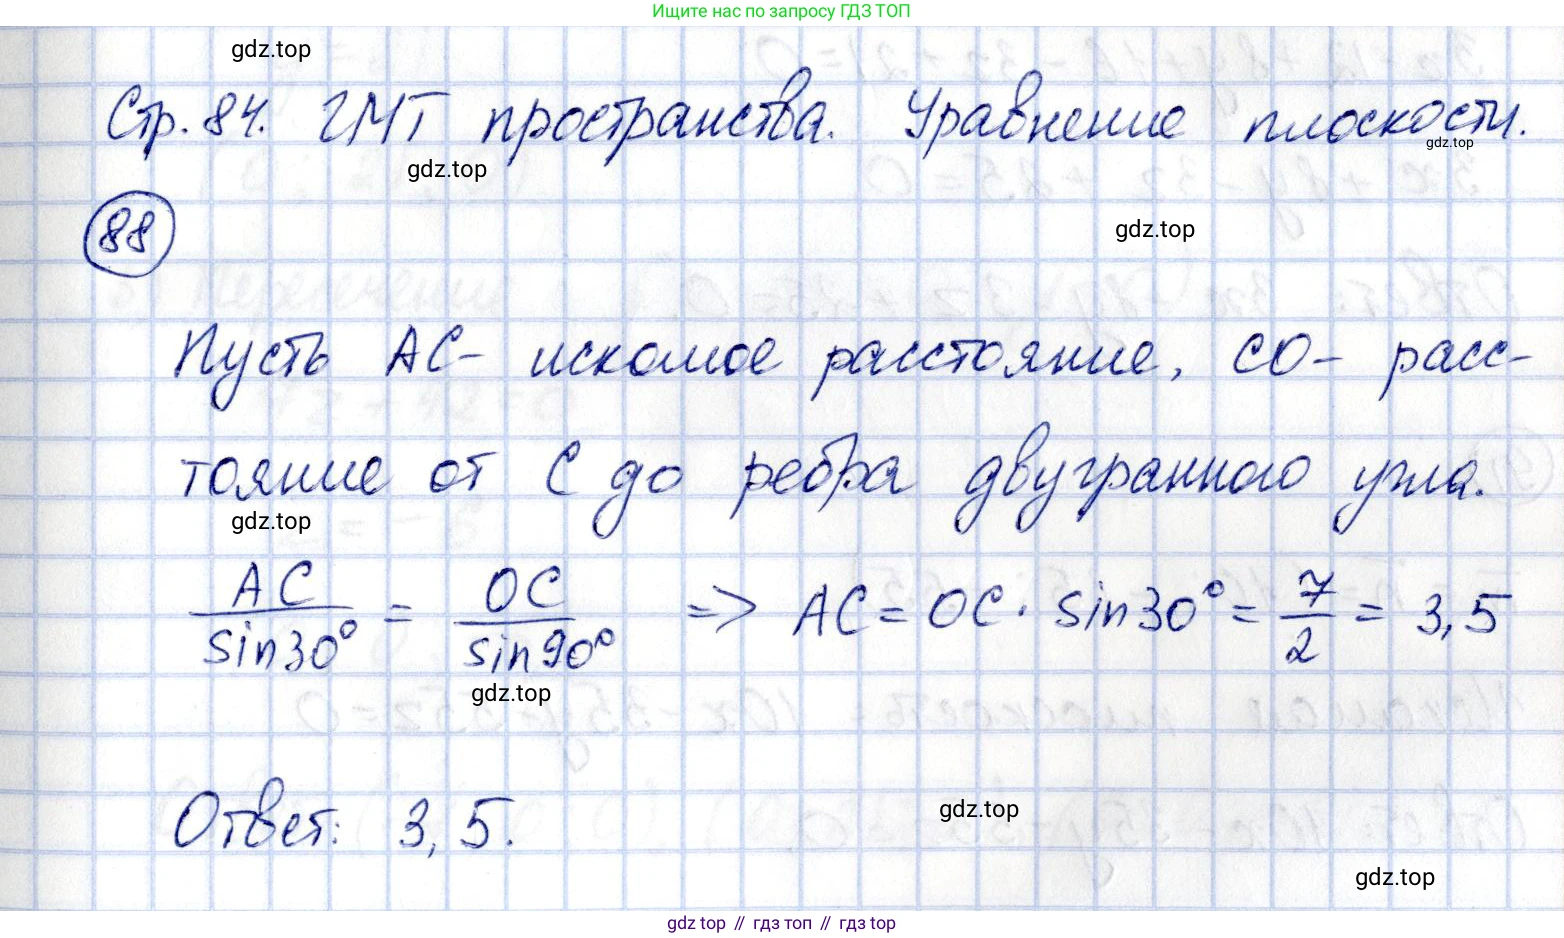 Ищите нас по запросу ГДЗ ТОП
gdz.top
Стр. 84. ГМТ пространства. Уравнение плоскости.
gdz.top
gdz.top
88
gdz.top
Пусть AC- искомое расстояние, CO- расс-
тояние от C до ребра двугранного угла.
gdz.top
AC/sin30° = OC/sin90° => AC = OC · sin30° = 7/2 = 3,5
gdz.top
Ответ: 3,5.
gdz.top
gdz.top
gdz.top // гдз топ // гдз top